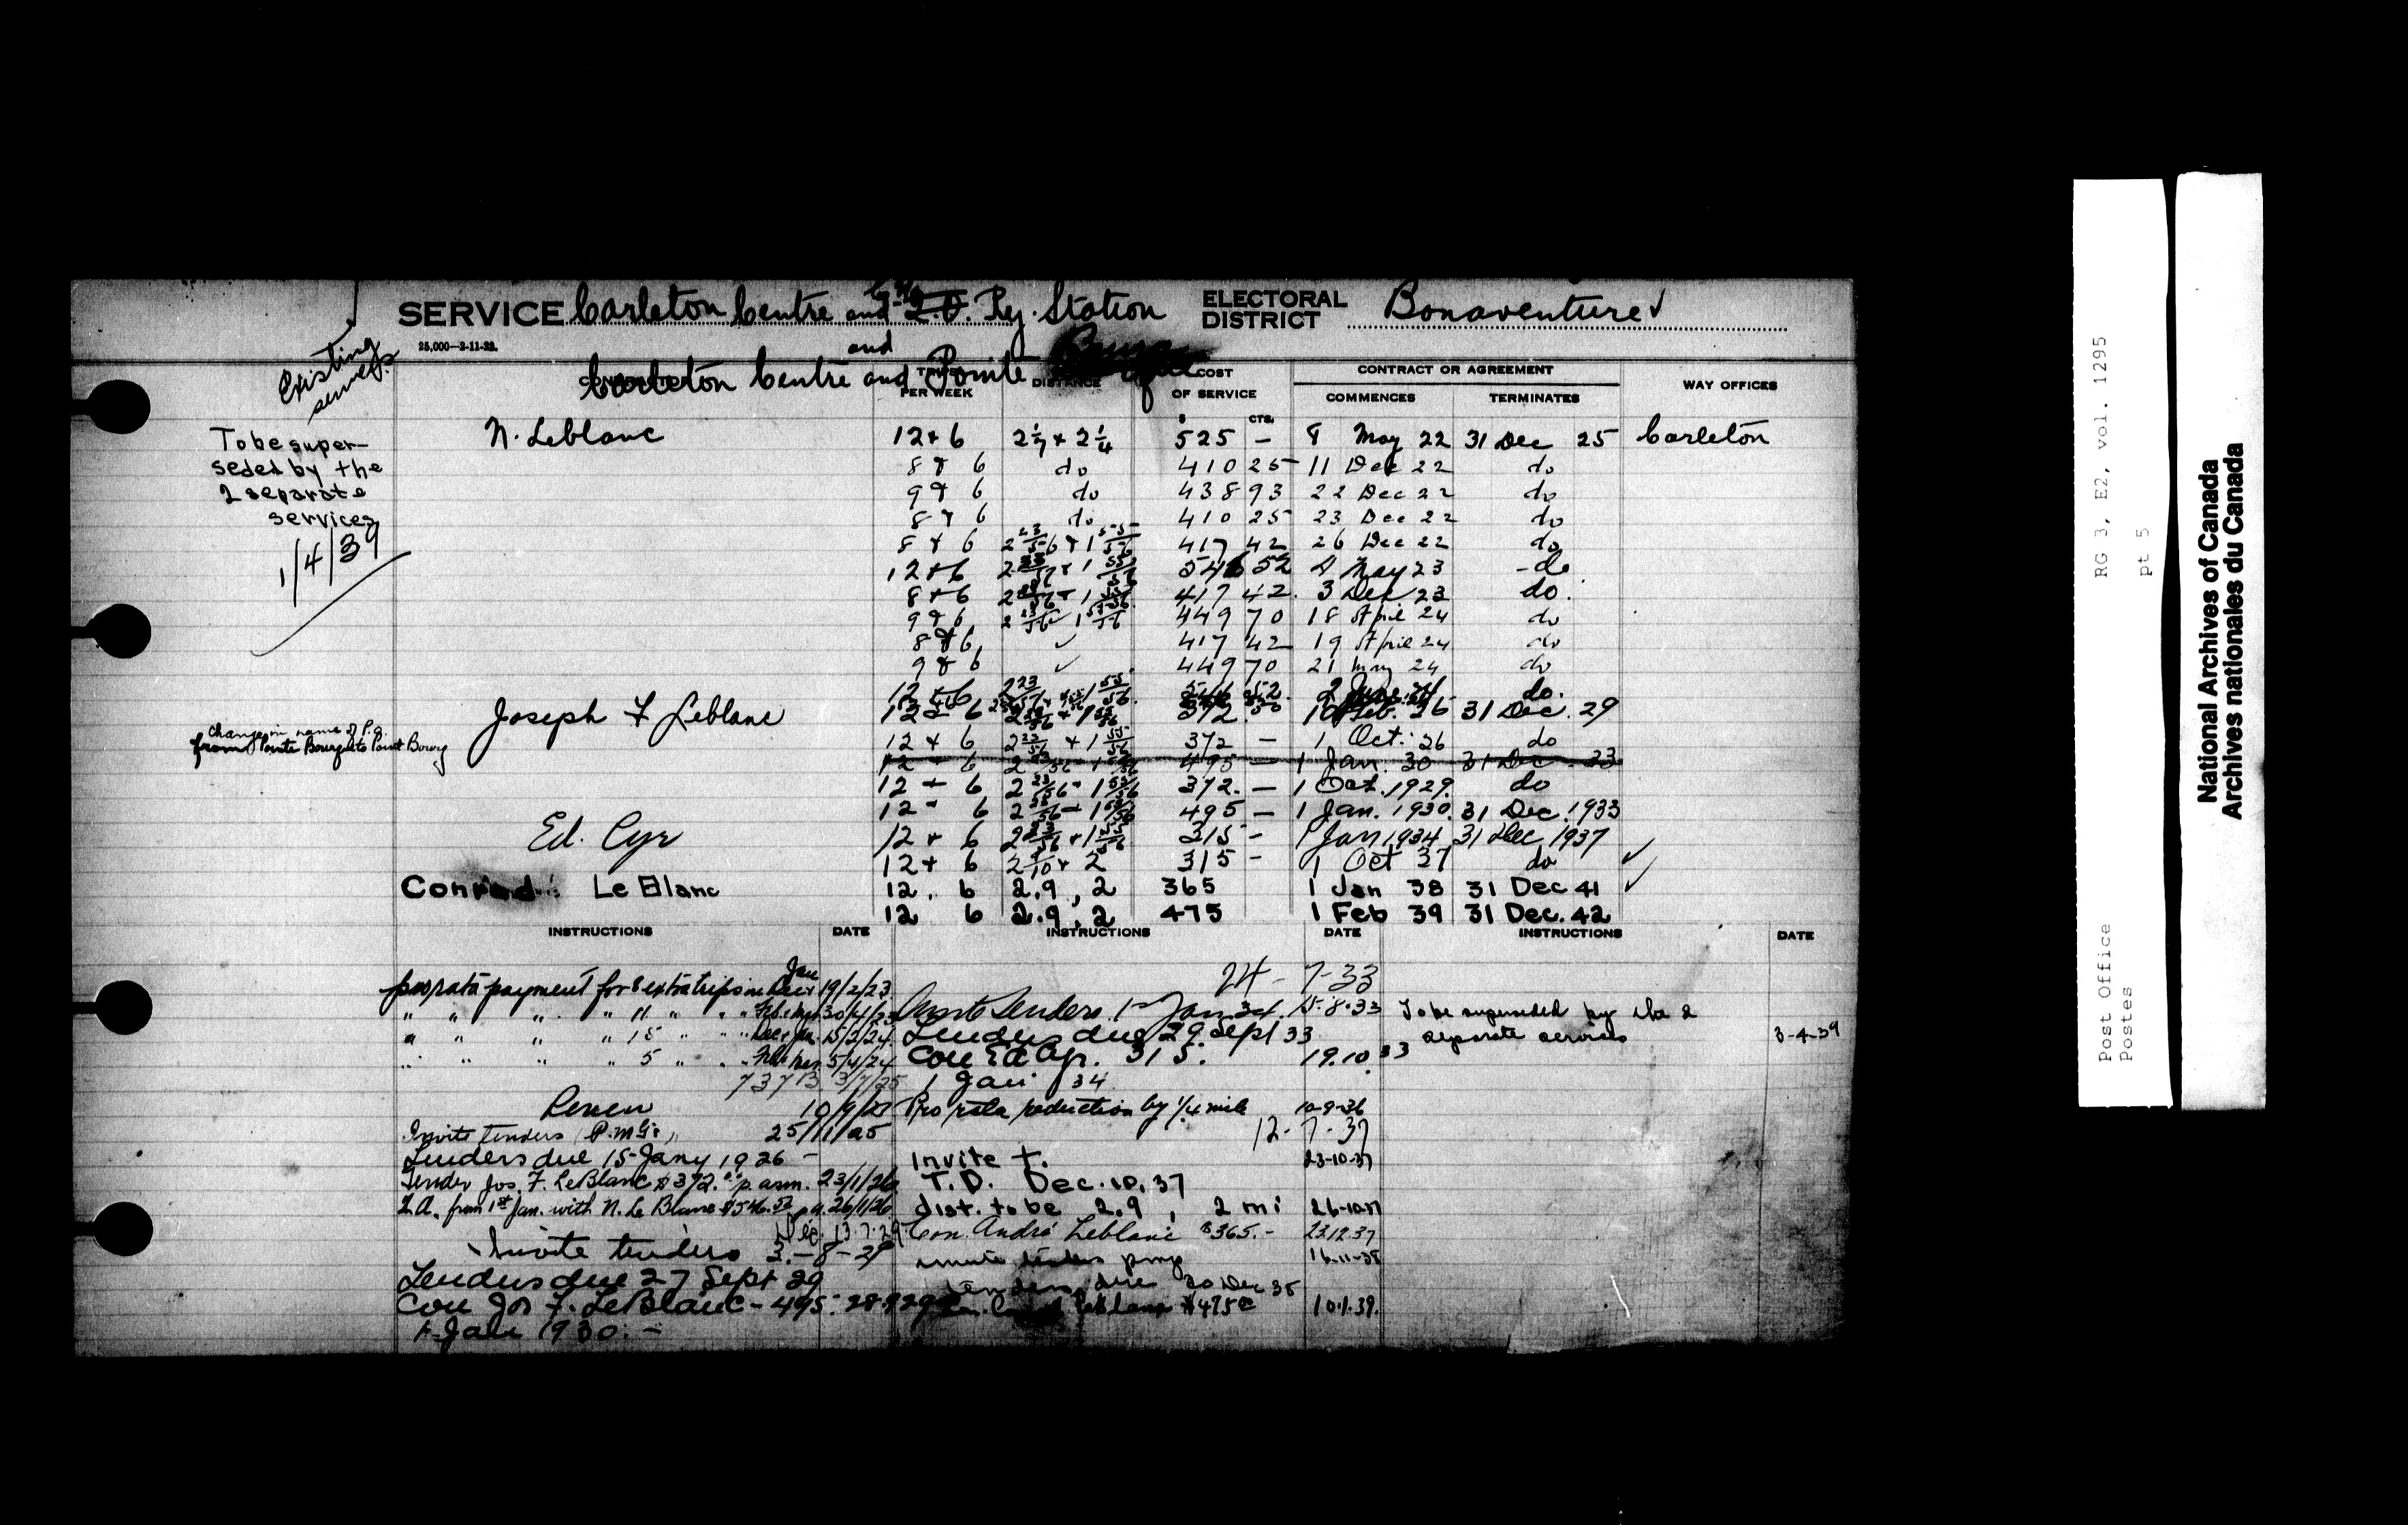 SERVICE Carleton Centre and Ry. Station ELECTORAL DISTRICT Bonaventure
25,000—2-11-22.
and
Carleton Centre and Pointe
Existing
TRIPS PER WEEK DISTANCE COST OF SERVICE CONTRACT OR AGREEMENT WAY OFFICES
COMMENCES TERMINATES
$ CTS.
N. Leblanc 12 + 6 525 — 8 May 22 31 Dec 25 Carleton
8 & 6 do 410 25 11 Dec 22 do
9 & 6 do 438 93 22 Dec 22 do
8 & 6 do 410 25 23 Dec 22 do
8 & 6 2 23/56 & 1 55/56 417 42 26 Dec 22 do
12 + 6 2 23/56 + 1 55/56 546 52 May 23 - do
8 + 6 2 23/56 + 1 55/56 417 42 3 Dec 23 do.
9 & 6 2 23/56 1 55/56 449 70 18 April 24 do
8 & 6 ✓ 417 42 19 April 24 do
9 & 6 ✓ 449 70 21 May 24 do
12 + 6 2 23/56 1 55/56 546 52. 2 June 24 do.
Joseph F Leblanc 12 + 6 2 23/56 + 1 55/56 372. 10 Feb. 26 31 Dec. 29
12 + 6 2 23/56 + 1 55/56 372 — 1 Oct. 26 do
12 + 6 2 23/56 1 55/56 495 — 1 Jan. 30 31 Dec 33
12 - 6 2 23/56 - 1 55/56 372. — 1 Oct. 1929. do
12 - 6 2 23/56 - 1 55/56 495 — 1 Jan. 1930. 31 Dec. 1933
Ed. Cyr 12 + 6 2 23/56 + 1 55/56 315 - 1 Jan 1934 31 Dec 1937
12 + 6 315 - 1 Oct 37 do ✓
Conrad Le Blanc 12. 6 2.9, 2 365 1 Jan 38 31 Dec 41 ✓
12 6 2.9, 2 475 1 Feb 39 31 Dec. 42
To be super-
seded by the
2 separate
services
1/4/39
Change in name of P.O.
from Pointe Bourg to Point Bourg
INSTRUCTIONS DATE INSTRUCTIONS DATE INSTRUCTIONS DATE
Jan
pro rata payment for 8 extra trips in Dec 19/2/23
" " " " 11 " " " Feb. & Mar 30/4/23
" " " " 18 " " " Dec & Jan. 15/2/24
" " " " 5 " " " 5/4/24
737 B 3/7/25
Renew 10/9/25
Invite tenders (P.M.G.) 25/11/25
Tenders due 15 Jany 1926 -
Tender Jos. F. LeBlanc $372. p. ann. 23/1/26
T.A. from 1st Jan. with N. Le Blanc $546.52 p.a. 26/1/26
13.7.29
Invite tenders 3.-8-29
Tenders due 27 Sept 29
Con Jos F. LeBlanc - 495.
1 Jan 1930. -
24-7-33
Invite Tenders 1 Jan 34. 15.8.33
Tenders due 29 Sept 33
Con Ed Cyr. 315. 19.10.33
1 Jan 34
Pro rata reduction by 1/4 mile 10-9-36
12-7-37
Invite t. 23-10-37
T.D. Dec. 10, 37
dist. to be 2.9, 2 mi 26-10-37
Con. André Leblanc $365.- 23.12.37
invite tenders 16-11-38
tenders due 20 Dec 38
Leblanc $475 10.1.39.
To be superseded by the 2
separate services 3-4-39
Post Office RG 3, E2, vol. 1295
Postes pt 5
National Archives of Canada
Archives nationales du Canada